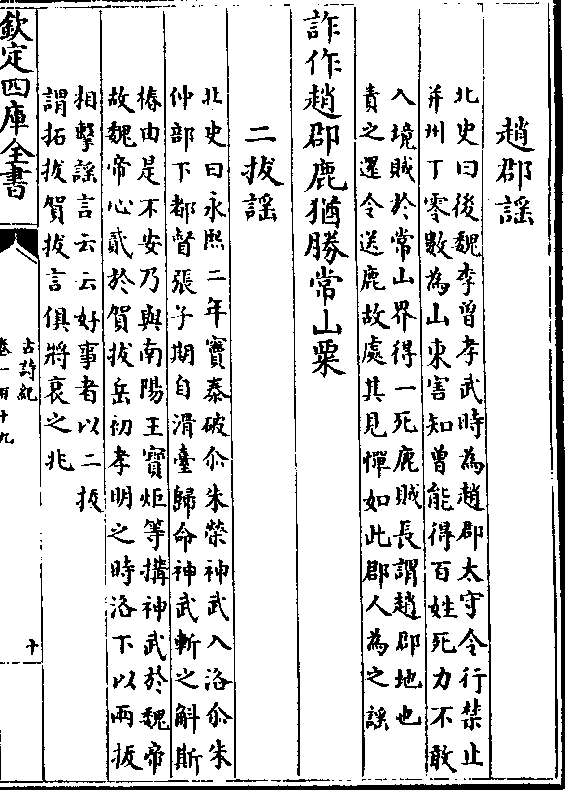 趙郡謡
北史曰後魏李曽孝武時為趙郡太守令行禁止
并州丁零數為山東害知曽能得百姓死力不敢
入境賊於常山界得一死鹿賊長謂趙郡地也
責之還令送鹿故處其見憚如此郡人為之謡
詐作趙郡鹿猶勝常山粟
二拔謡
北史曰永熙二年竇泰破尒朱榮神武入洛尒朱
仲部下都督張子期自滑臺歸命神武斬之斛斯
椿由是不安乃與南陽王寶炬等搆神武於魏帝
故魏帝心貳於賀拔岳初孝明之時洛下以兩拔
相擊謡言云云好事者以二拔
謂拓拔賀拔言俱將衰之兆
欽定四庫全書
古詩紀
卷一百十九
十